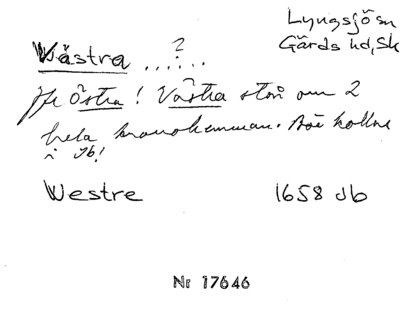 Lyngsjö sn
Gärds hd, Sk
Västra ..?..
Jfr Östra! Västra står om 2
hela kronohemman. Bör kollas
i Jb!
Westre 1658 Jb
Nr 17646